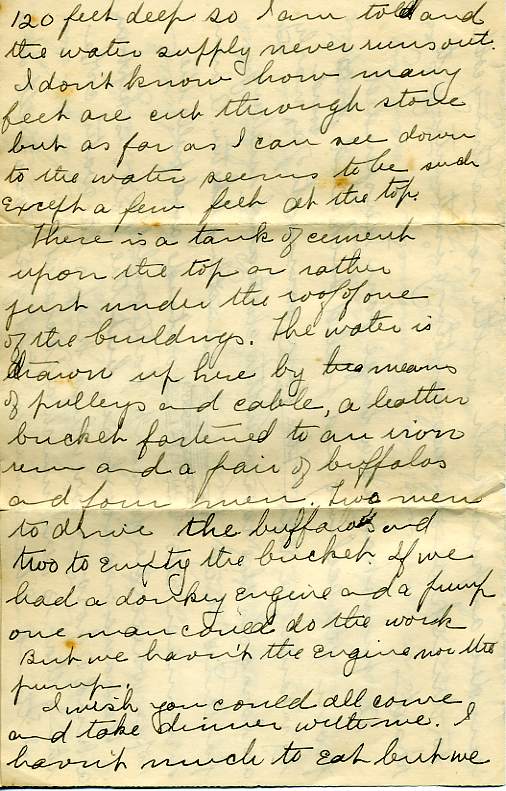 120 feet deep so I am told and
the water supply never runs out.
I don't know how many
feet are cut through stone
but as far as I can see down
to the water seems to be such
Except a few feet at the top.
There is a tank of cement
upon the top or rather
just under the roof of one
of the buildings. The water is
drawn up here by means
of pulleys and cable, a leather
bucket fastened to an iron
rim and a pair of buffalos
and four men. Two men
to drive the buffalos and
two to empty the bucket. If we
had a donkey engine and a pump
one man could do the work
But we havn't the Engine nor the
pump.
I wish you could all come
and take dinner with me. I
havn't much to Eat but we